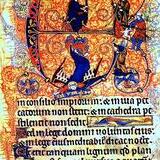 in consilio impiorum: & in uia pec
catorum non stetit: & in cathedra pe
stilentie non sedit
Sed in lege domini uoluntas eius: &
in lege eius meditabit' die ac nocte
Et erit tanquam lignum qd plan